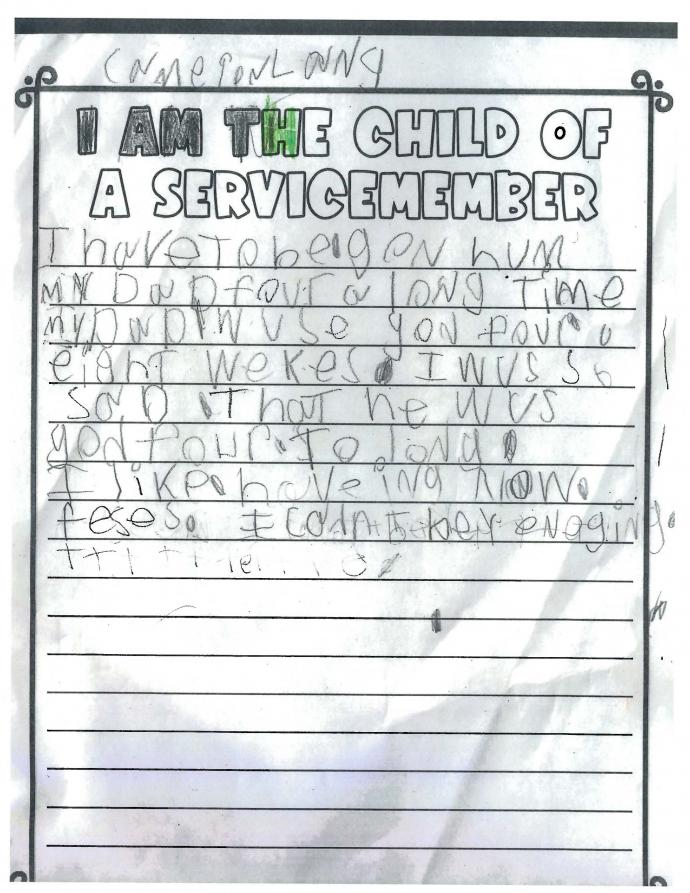 Cameron Lanng
I AM THE CHILD OF
A SERVICEMEMBER
I have To beig on hum
my Dad four a long Time
my Dad WUSe god four a
eight wekes. I WUS So
SaD That he WUS
god four To long.
I like haveing now
feses. I